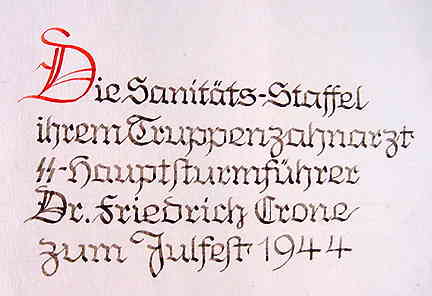 Die Sanitäts-Staffel
ihrem Truppenzahnarzt
SS-Hauptsturmführer
Dr. Friedrich Crone
zum Julfest 1944